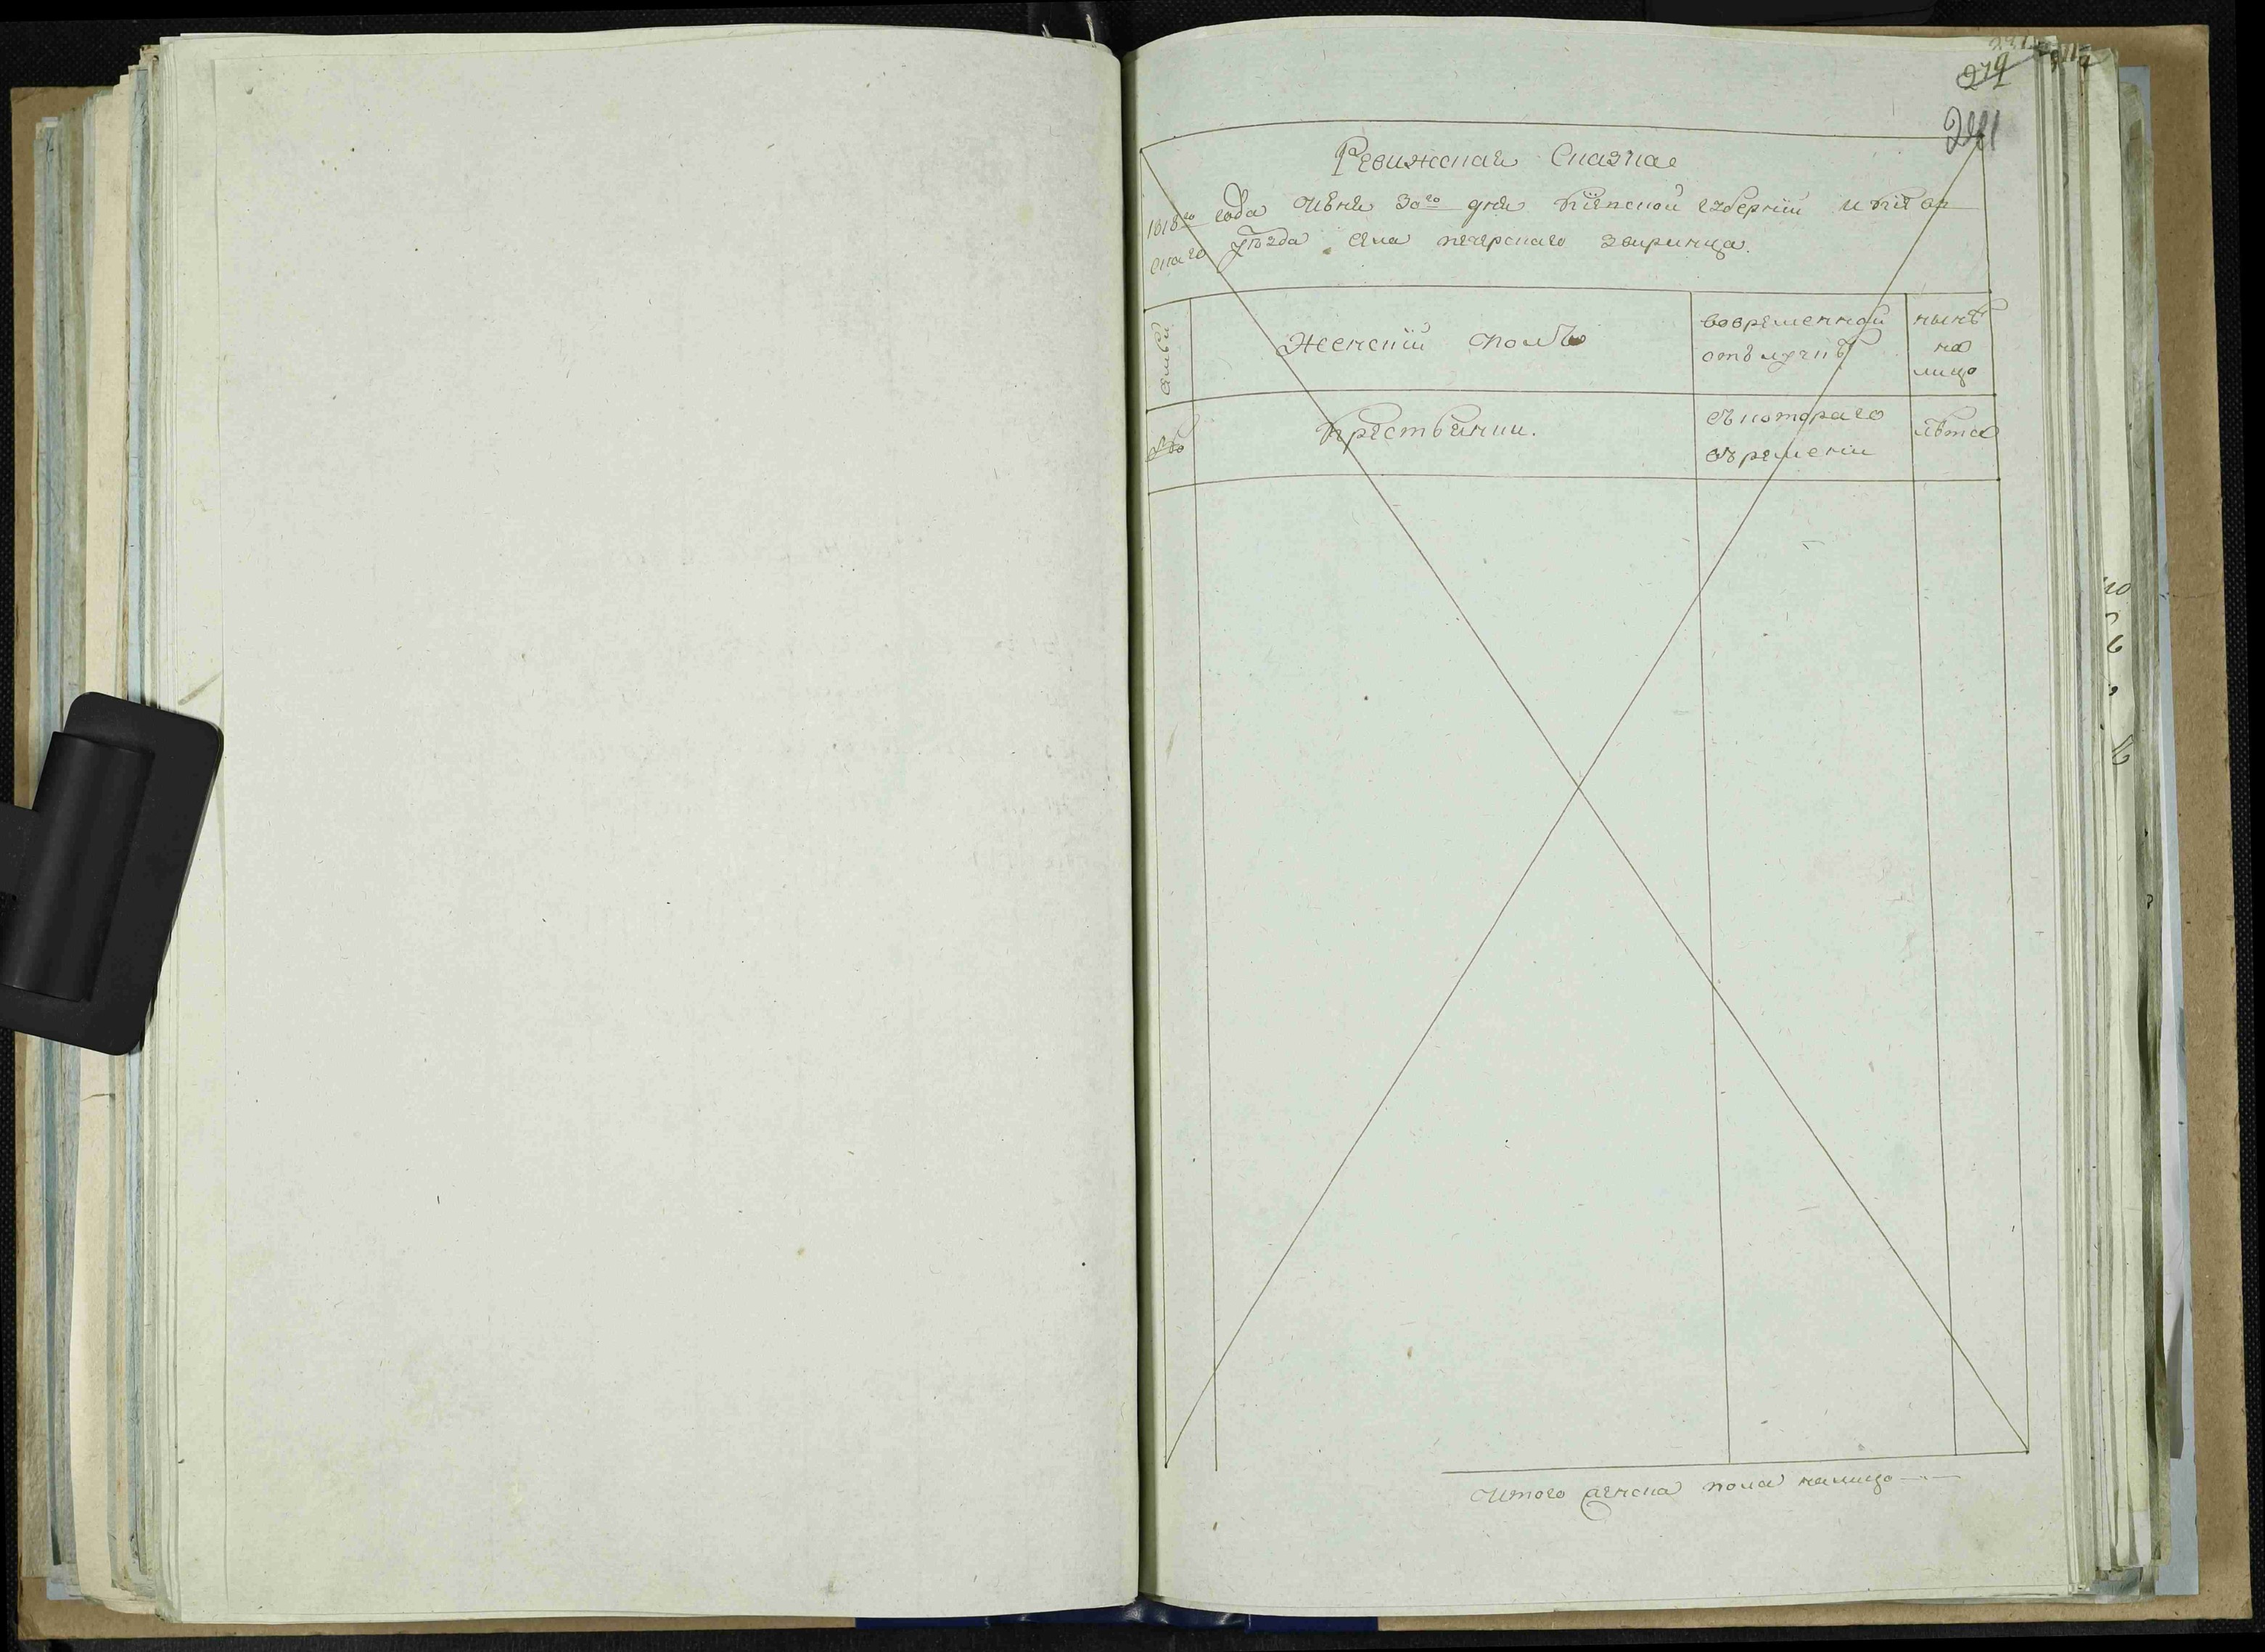 279
241
Ревижская Сказка
1818го года Июня 30го дня Киевской губернии и Киев
скаго уѣзда села печерскаго звиринца.
Семьи
Женскій полъ
вовременной
отълучкѣ
нынѣ
на
лицо
№
Крестьянки.
съ котораго
въремени
лѣта
Итого женска пола налицо